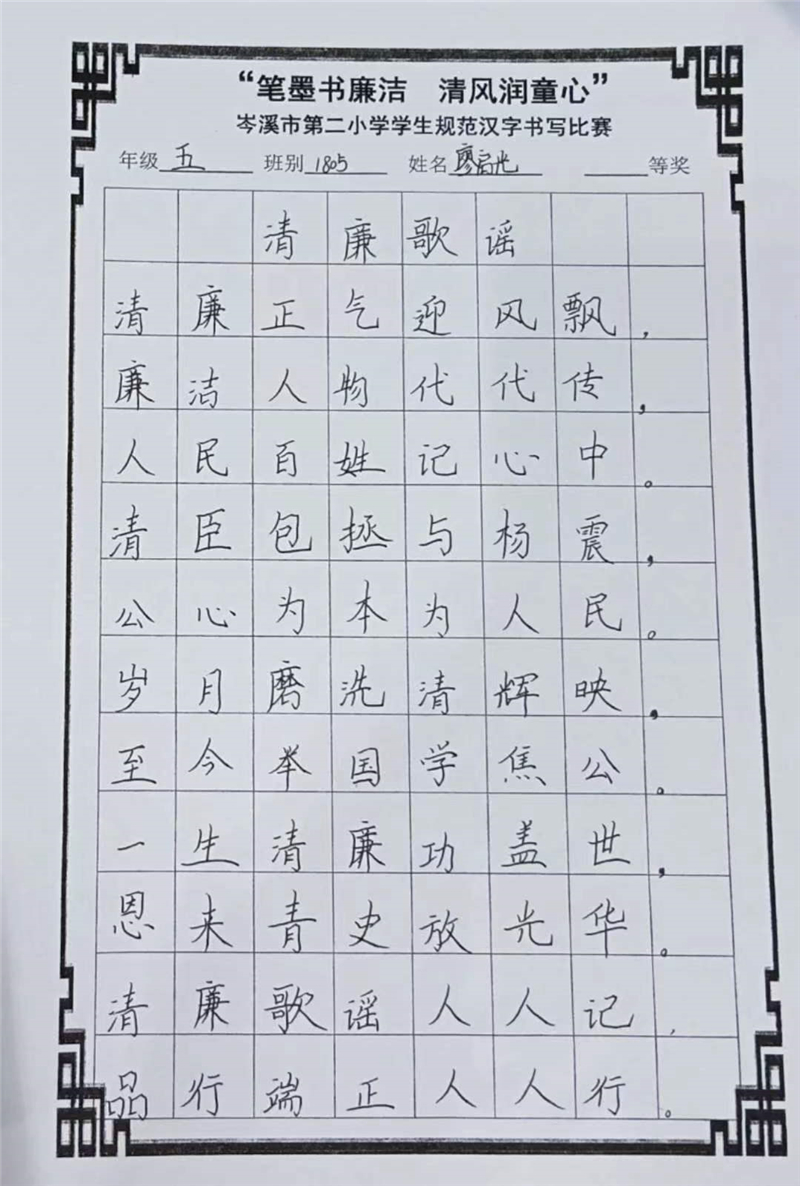 “笔墨书廉洁 清风润童心”
岑溪市第二小学学生规范汉字书写比赛
年级 五 班别 1805 姓名 廖启光 等奖
清廉歌谣
清廉正气迎风飘，
廉洁人物代代传，
人民百姓记心中。
清臣包拯与杨震，
公心为本为人民。
岁月磨洗清辉映，
至今举国学焦公。
一生清廉功盖世，
恩来青史放光华。
清廉歌谣人人记，
品行端正人人行。